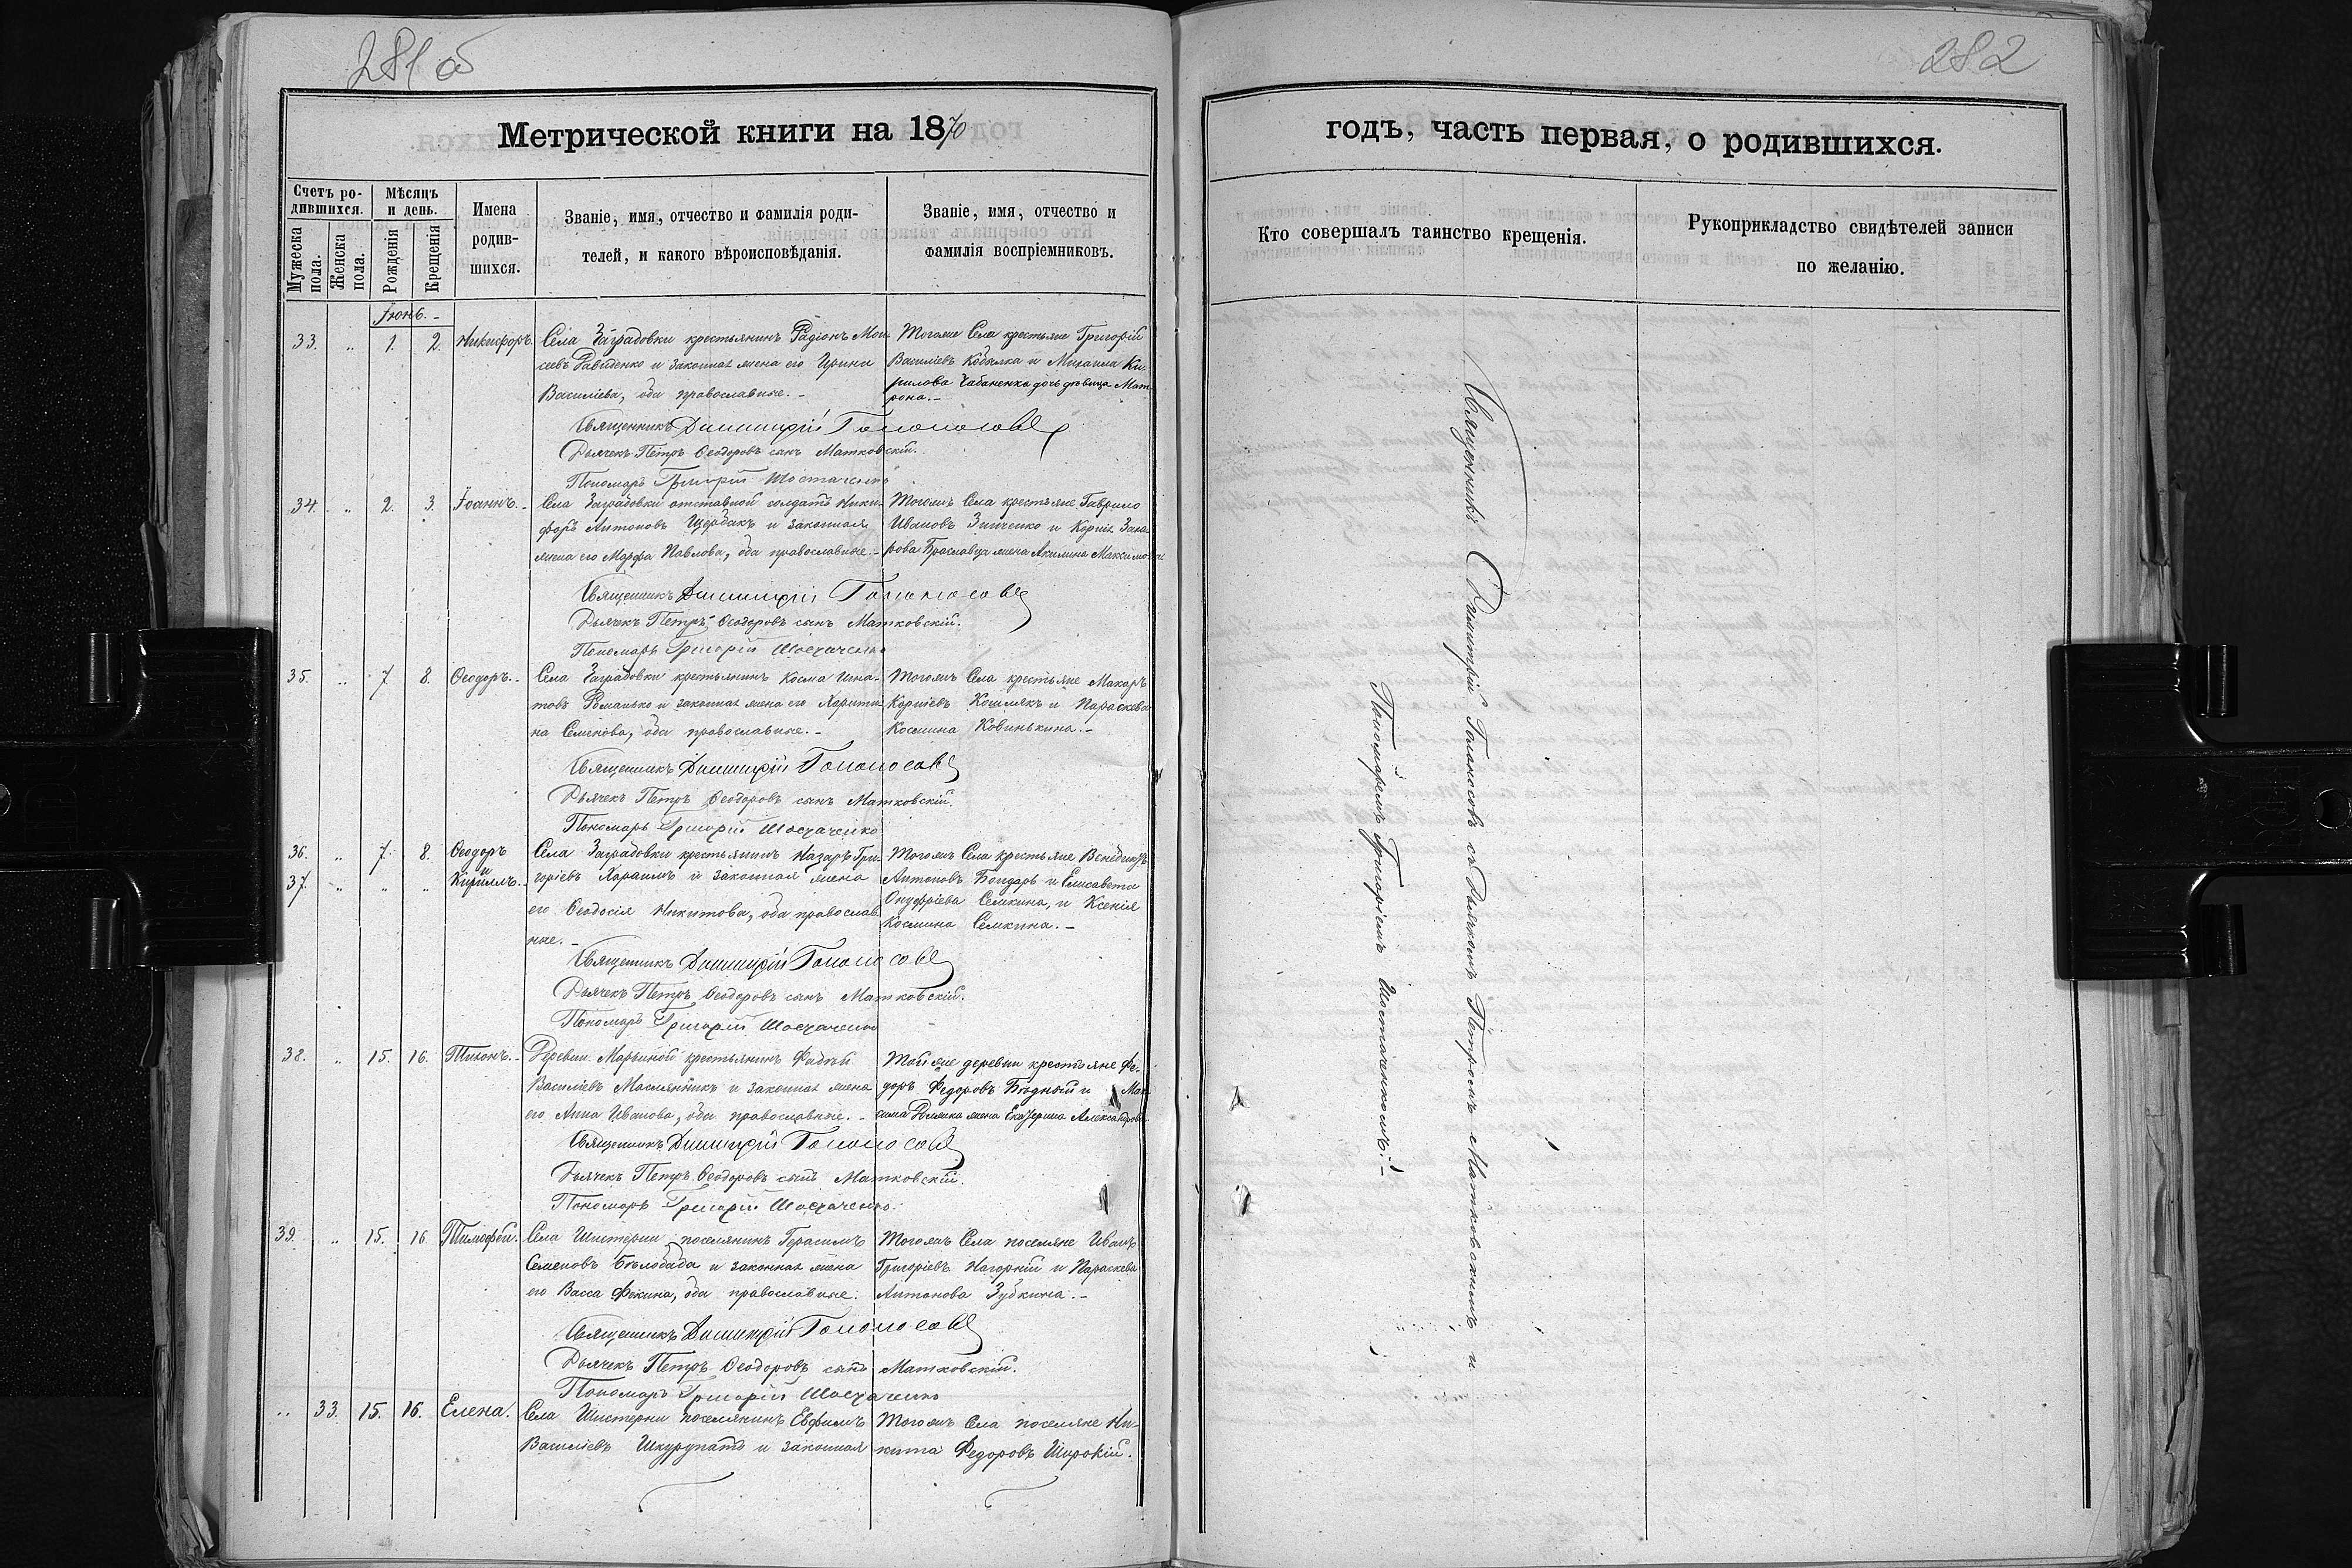 281 об
Метрической книги на 1870
Счетъ родившихся.
Мужеска пола.
Женска пола.
Мѣсяцъ и день.
Рожденія
Крещенія
Имена родившихся.
Званіе, имя, отчество и фамилія родителей, и какого вѣроисповѣданія.
Званіе, имя, отчество и фамилія воспріемниковъ.
Іюнь.-
33. " 1. 2. Никифоръ.
Села Заградовки крестьянинъ Радіонъ Мои-
сеевъ и законная жена его Ирина
Василіева, оба православные.-
Тогоже Села крестьяне Григорій
Василіевъ Кобылка и Михаила Ки-
рилова Чабаненка дочь дѣвица Мат-
рона.-
Священникъ Димитрій
Дьячекъ Петръ Ѳеодоровъ сынъ Матковскій.
Пономарь Григорій Шостаченко
34. " 2. 3. Іоаннъ.-
Села Заградовки отставной солдатъ Ники-
форъ Антоновъ Щербакъ и законная
жена его Марфа Павлова, оба православные.-
Тогожъ Села крестьяне Гаврило
Ивановъ Зинченко и Корнія Заха-
рова Браславца жена Акилина Максимова
Священникъ Димитрій
Дьячекъ Петръ Ѳеодоровъ сынъ Матковскій.
Пономарь Григорій Шостаченко
35. " 7. 8. Ѳеодоръ.-
Села Заградовки крестьянинъ Косма Игна-
товъ Романько и законная жена его Харити-
на Семенова, оба православные.-
Тогожъ Села крестьяне Макаръ
Корніевъ Кошлякъ и Параскева
Космина Ковинькина.-
Священникъ Димитрій
Дьячекъ Петръ Ѳеодоровъ сынъ Матковскій.
Пономарь Григорій Шостаченко
36. " 7. 8. Ѳеодоръ
и
37. " " " Кириллъ.-
Села Заградовки крестьянинъ Назаръ Гри-
горіевъ Хараимъ и законная жена
его Ѳеодосія Никитова, оба православ-
ные.-
Тогожъ Села крестьяне Венедиктъ
Антоновъ Бондарь и Елисавета
Онуфріева Семкина, и Ксенія
Космина Семкина.-
Священникъ Димитрій
Дьячекъ Петръ Ѳеодоровъ сынъ Матковскій.
Пономарь Григорій Шостаченко
38. " 15. 16. Тихонъ.-
Деревни Марьиной крестьянинъ Фадѣй
Василіевъ Маслянникъ и законная жена
его Анна Иванова, оба православные.-
Той же деревни крестьяне Фе-
доръ Федоровъ Бѣдный и Мак-
сима жена Екатерина Александрова.
Священникъ Димитрій
Дьячекъ Петръ Ѳеодоровъ сынъ Матковскій.
Пономарь Григорій Шостаченко.
39. " 15. 16. Тимофей.
Села Шистерни поселянинъ Герасимъ
Семеновъ Бѣлобаба и законная жена
его Васса Фокина, оба православные.
Тогожъ Села поселяне Иванъ
Григоріевъ Нагорній и Параскева
Антонова Зубкина.-
Священникъ Димитрій
Дьячекъ Петръ Ѳеодоровъ сынъ Матковскій.
Пономарь Григорій Шостаченко
" 33. 15. 16. Елена.
Села Шистерни поселянинъ Евфимъ
Василіевъ Шкурупатъ и законная
Тогожъ Села поселяне Ни-
кита Федоровъ Широкій.
282
годъ, часть первая, о родившихся.
Кто совершалъ таинство крещенія.
Рукоприкладство свидѣтелей записи
по желанію.
Священникъ Димитрій съ Дьячкомъ Петромъ Матковскимъ и
Пономаремъ Григоріемъ Шостаченкомъ.-